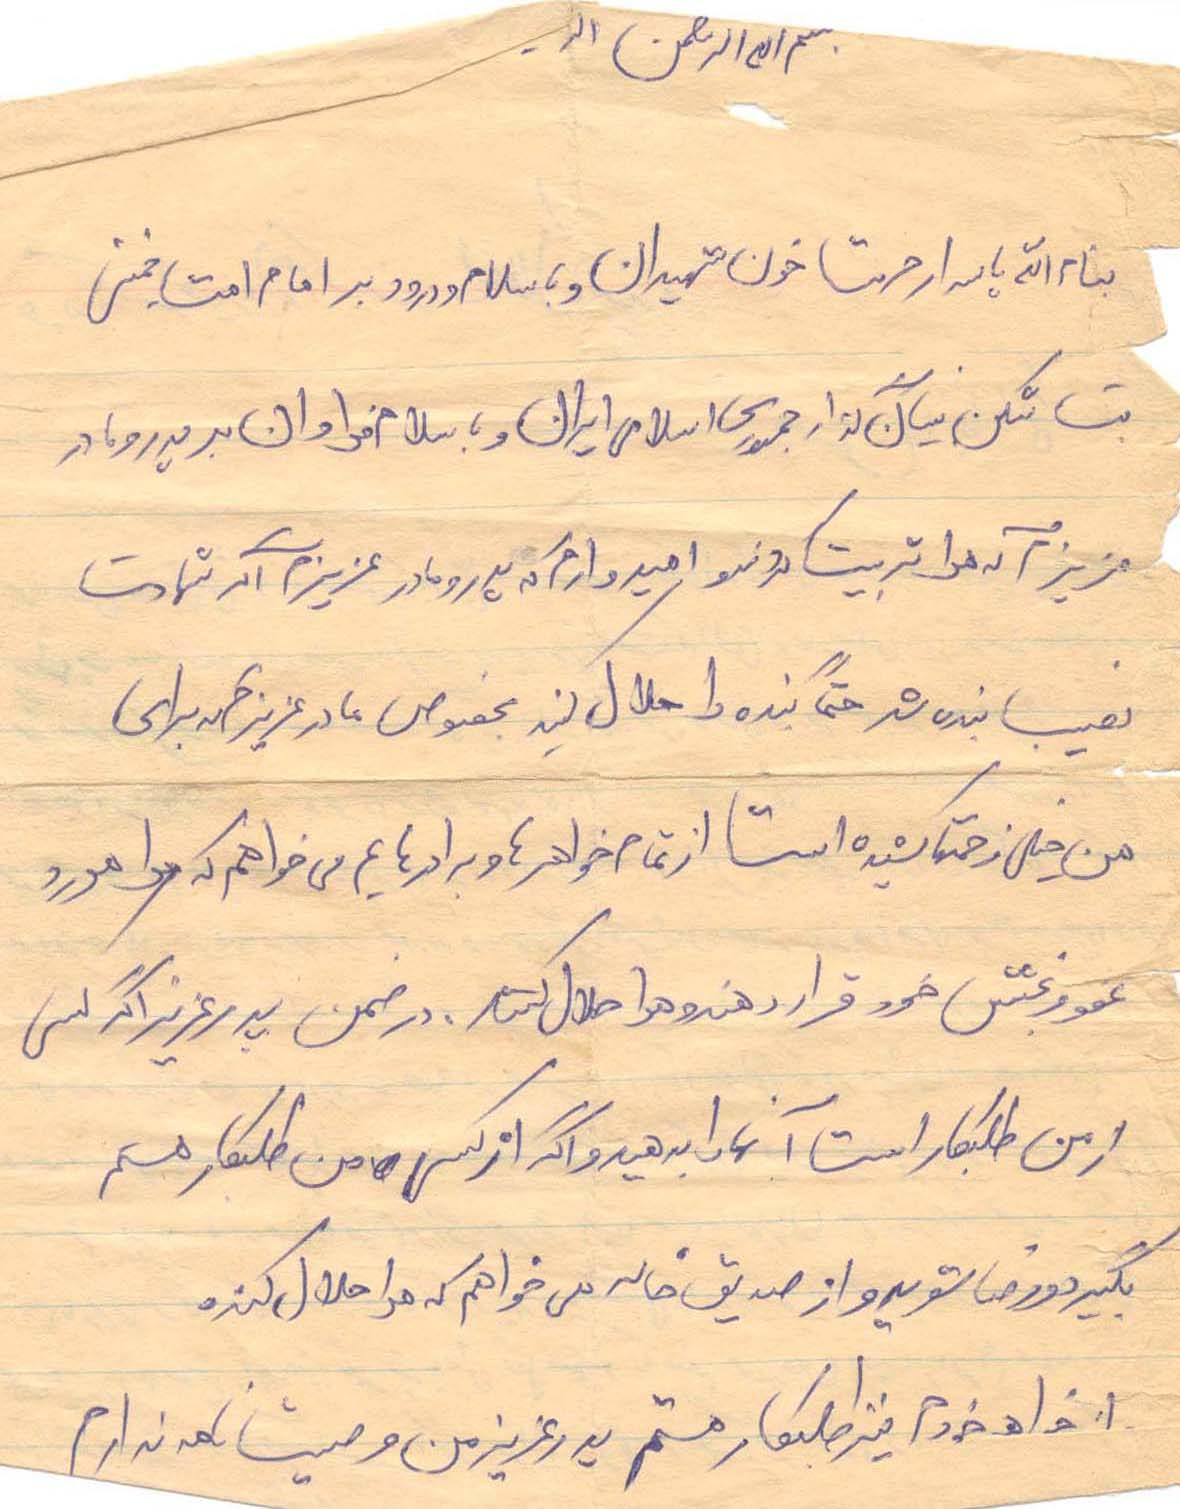 بسم الله الرحمن الر
بنام الله پاسدار حرمت خون شهیدان و با سلام و درود بر امام امت خمینی
بت شکن بنیانگذار جمهوری اسلامی ایران و با سلام فراوان بر پدر و مادر
عزیزم که مرا تربیت کردند و امیدوارم که پدر و مادر عزیزم اگر شهادت
نصیب بنده شد حتماً بنده را حلال کنید بخصوص مادر عزیزم که برای
من خیلی زحمت کشیده است از تمام خواهرها و برادرهایم می خواهم که مرا مورد
عفو و بخشش خود قرار دهند و مرا حلال کنند . در ضمن پدر عزیز اگر کسی
از من طلبکار است آنها را بدهید و اگر از کسی من طلبکار هستم
بگیرید و شوید و از صدیق خاله می خواهم که مرا حلال کنده
از خدا خودم نیز طلبکار هستم پدر عزیز من وصیت نامه ندارم